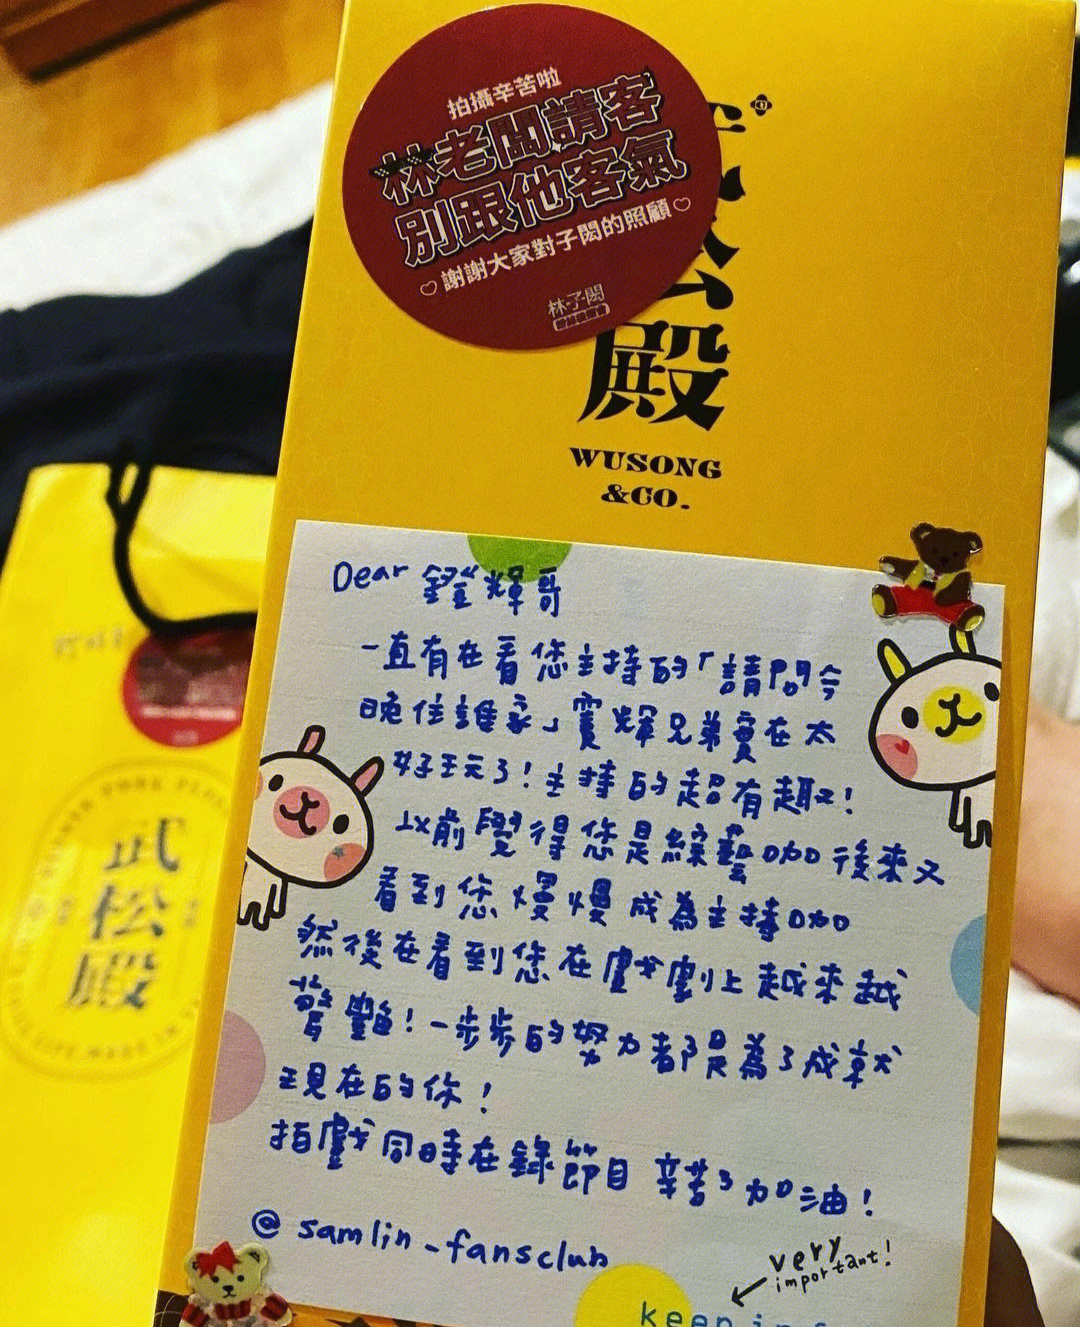 拍攝辛苦啦
林老闆請客
別跟他客氣
♡ 謝謝大家對子閎的照顧 ♡
林子閎
殿
WUSONG
&CO.
Dear 鐙輝哥
一直有在看您主持的「請問今
晚住誰家」賓輝兄弟實在太
好玩了!主持的超有趣!
以前覺得您是綜藝咖 後來又
看到您慢慢成為主持咖
然後在看到您在戲劇上越來越
驚艷!一步步的努力都是為了成就
現在的你!
拍戲同時在錄節目 辛苦了加油!
@samlin_fansclub
very
important!
keep in
武松殿